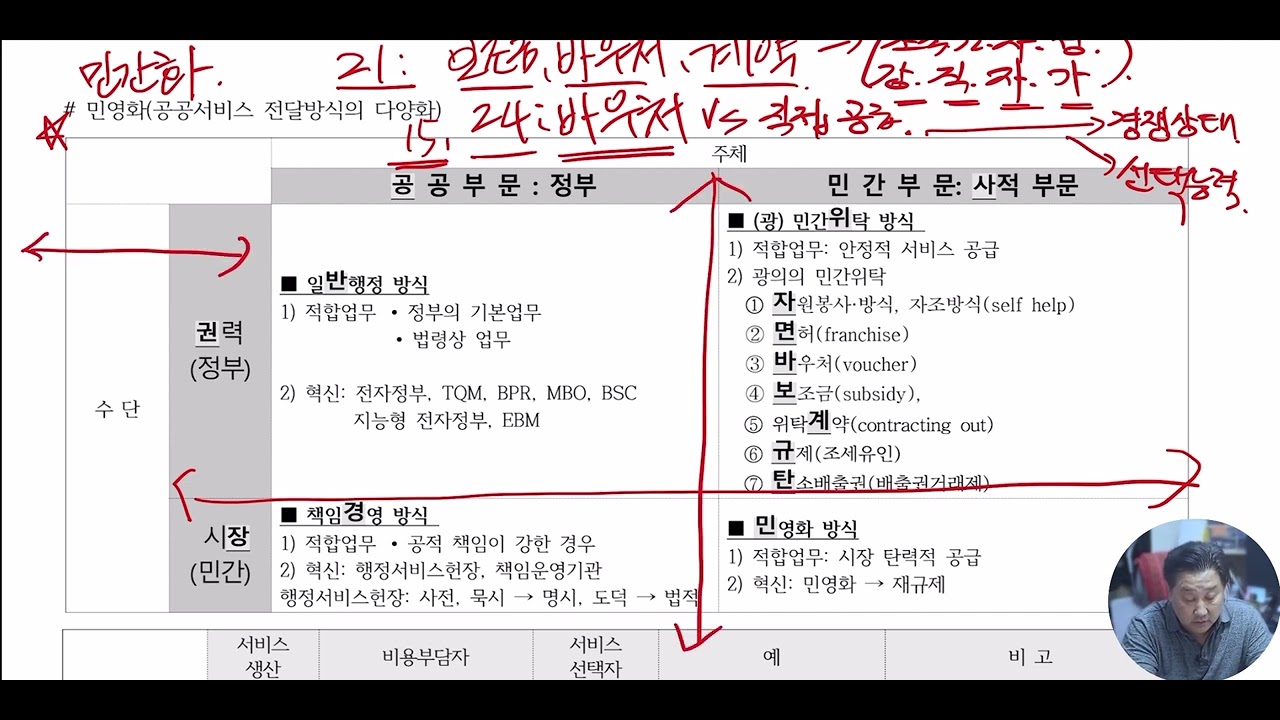 민간화.
21: 보조금, 바우처, 계약 →
(강.직.자.가).
# 민영화(공공서비스 전달방식의 다양화)
15, 24: 바우처 vs 직접 공급. → 경쟁상태
선택능력.
주체
공 공 부 문 : 정부
민 간 부 문: 사적 부문
수 단
권력
(정부)
■ 일반행정 방식
1) 적합업무 • 정부의 기본업무
• 법령상 업무
2) 혁신: 전자정부, TQM, BPR, MBO, BSC
지능형 전자정부, EBM
■ (광) 민간위탁 방식
1) 적합업무: 안정적 서비스 공급
2) 광의의 민간위탁
① 자원봉사·방식, 자조방식(self help)
② 면허(franchise)
③ 바우처(voucher)
④ 보조금(subsidy),
⑤ 위탁계약(contracting out)
⑥ 규제(조세유인)
⑦ 탄소배출권(배출권거래제)
시장
(민간)
■ 책임경영 방식
1) 적합업무 • 공적 책임이 강한 경우
2) 혁신: 행정서비스헌장, 책임운영기관
행정서비스헌장: 사전, 묵시 → 명시, 도덕 → 법적
■ 민영화 방식
1) 적합업무: 시장 탄력적 공급
2) 혁신: 민영화 → 재규제
서비스
생산
비용부담자
서비스
선택자
예
비 고